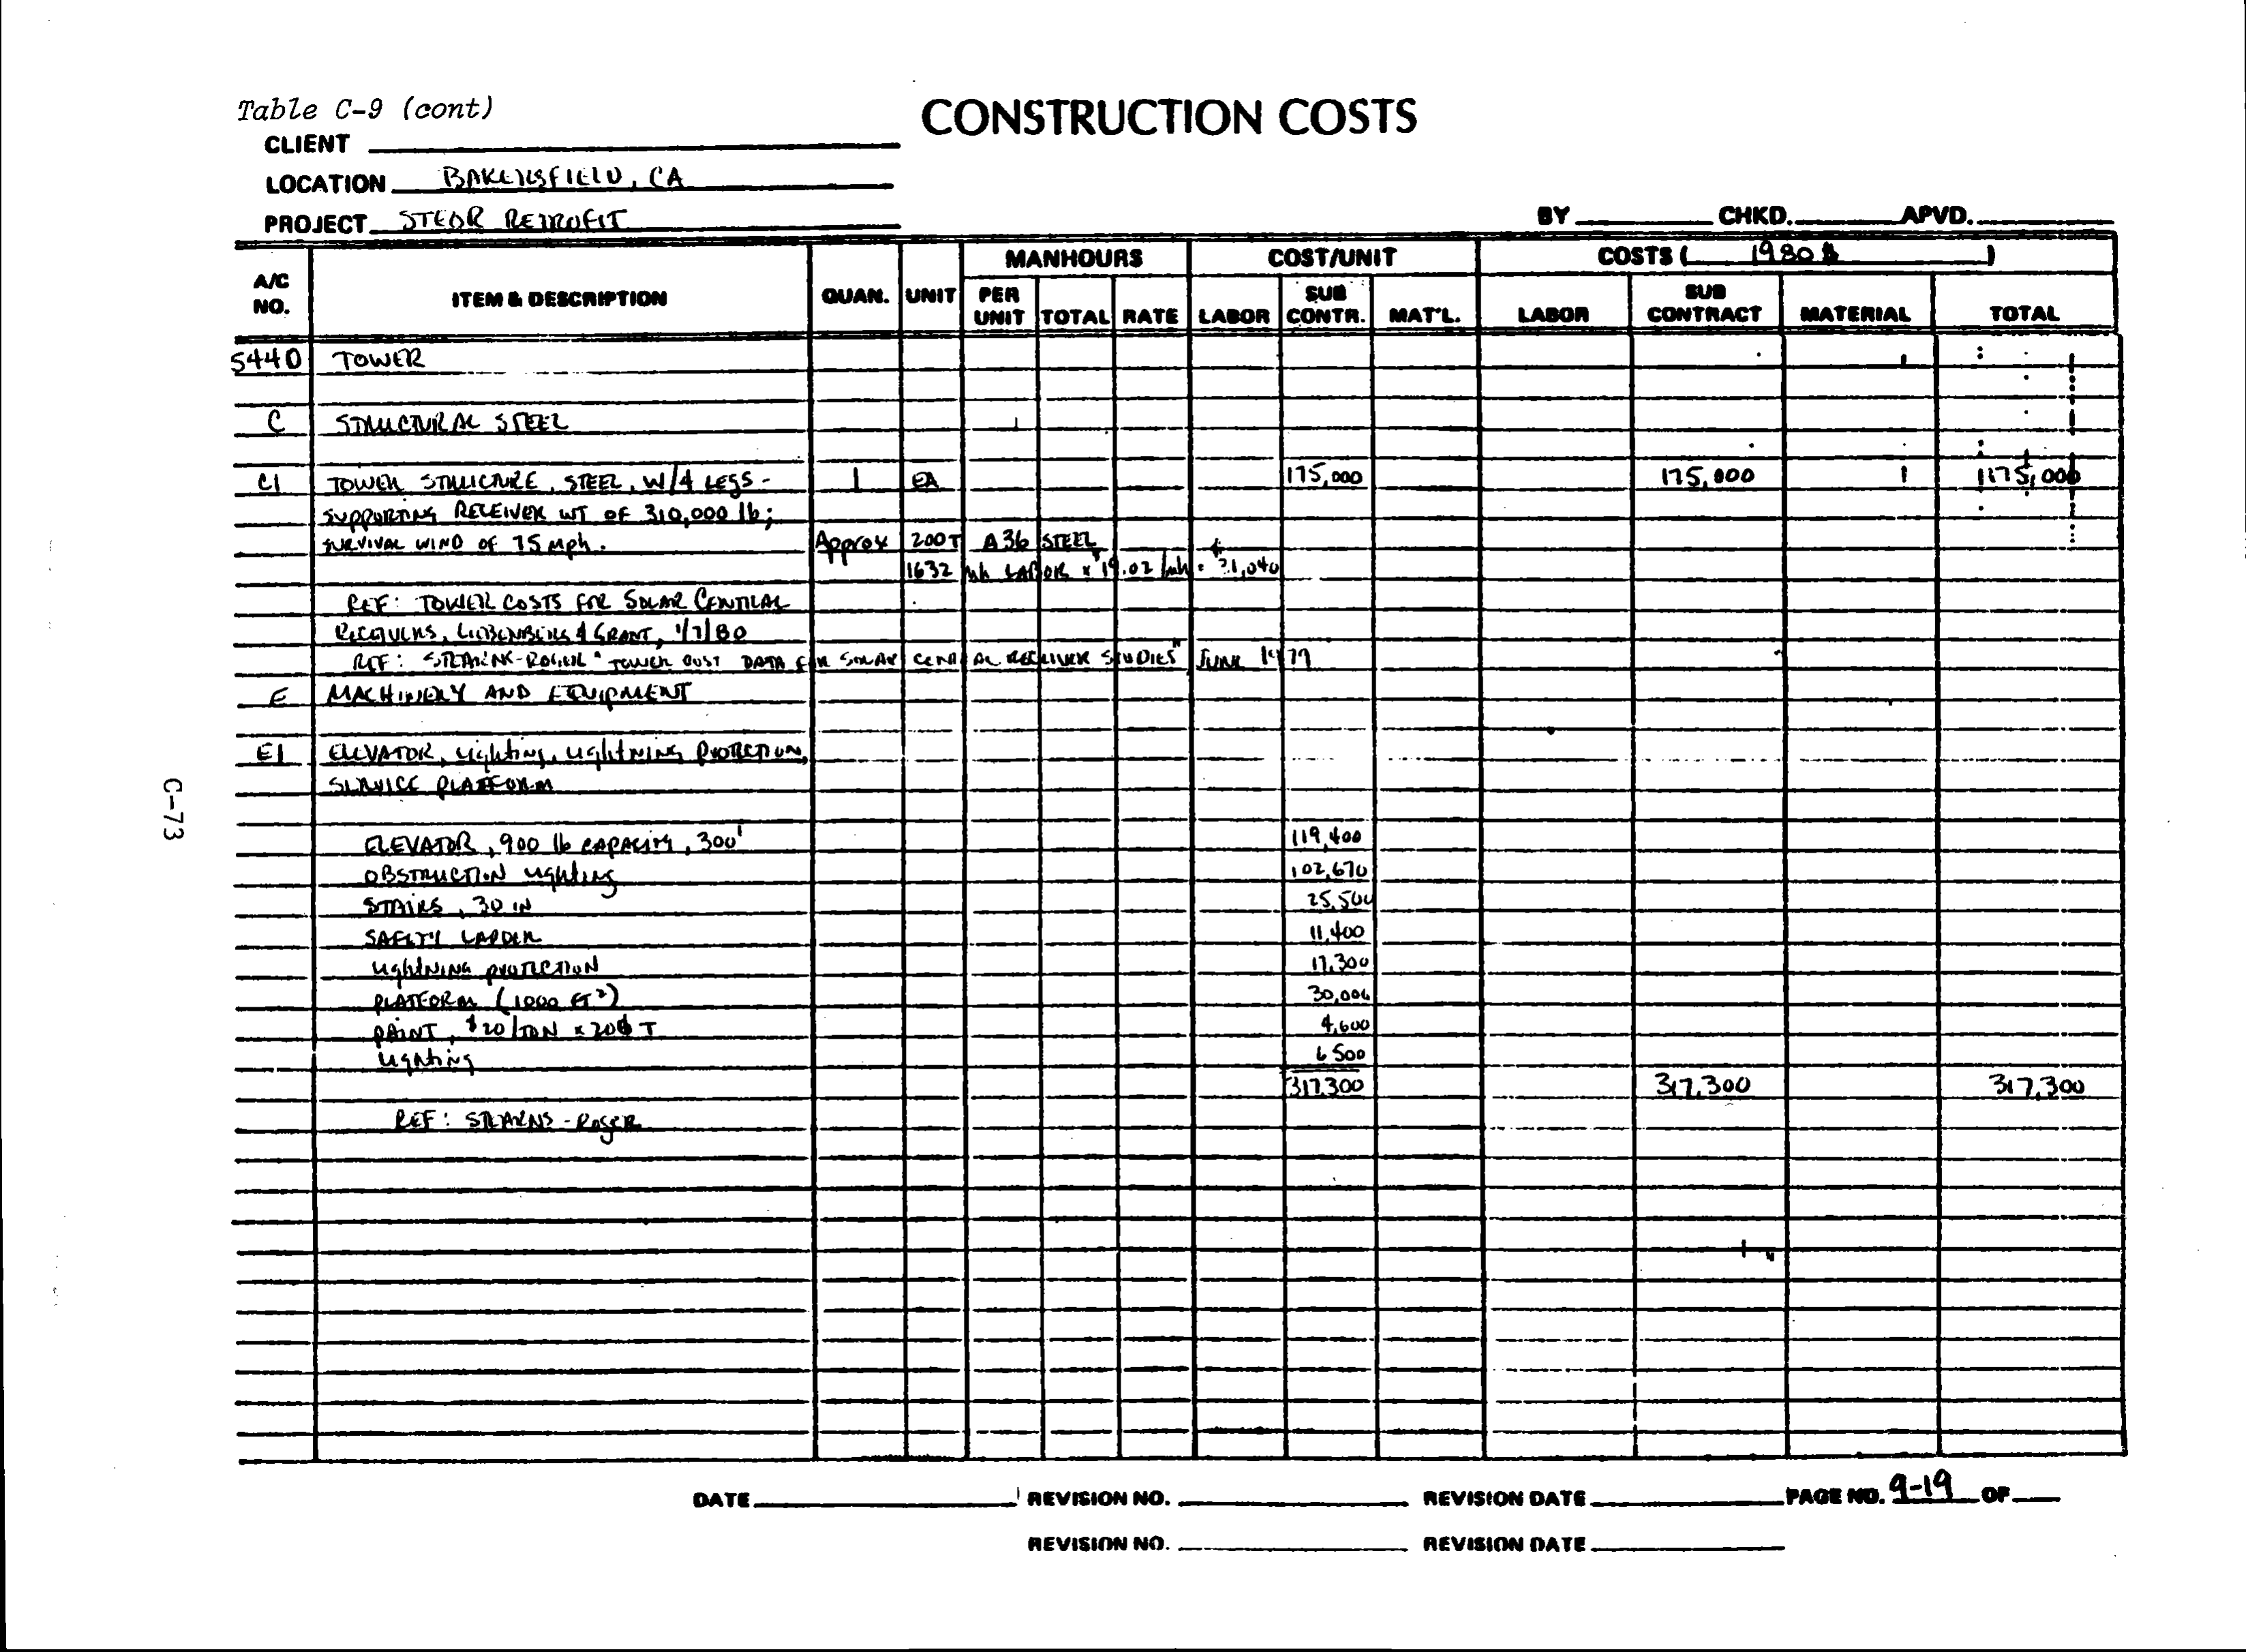 Table C-9 (cont)
CONSTRUCTION COSTS
CLIENT
LOCATION BAKERSFIELD, CA
PROJECT STEOR RETROFIT
BY CHKD. APVD.
A/C NO. ITEM & DESCRIPTION QUAN. UNIT MANHOURS PER UNIT TOTAL RATE COST/UNIT LABOR SUB CONTR. MAT'L. COSTS ( 1980 $ ) LABOR SUB CONTRACT MATERIAL TOTAL
5440 TOWER
C STRUCTURAL STEEL
C1 TOWER STRUCTURE, STEEL, W/4 LEGS - 1 EA 175,000 175,000 175,000
SUPPORTING RECEIVER WT OF 310,000 lb;
SURVIVAL WIND OF 75 mph. Approx 200T A36 STEEL
1632 mh LABOR x $19.02/mh = $31,040
REF: TOWER COSTS FOR SOLAR CENTRAL
RECEIVERS, & GRANT, 1/7/80
REF: STEARNS-ROGER "TOWER COST DATA FOR SOLAR CENTRAL RECEIVER STUDIES" JUNE 1979
E MACHINERY AND EQUIPMENT
E1 ELEVATOR, Lighting, Lightning PROTECTION,
SERVICE PLATFORM
ELEVATOR, 900 lb CAPACITY, 300' 119,400
OBSTRUCTION Lighting 102,670
STAIRS, 30 IN 25,500
SAFETY LADDER 11,400
Lightning PROTECTION 17,300
PLATFORM (1000 FT²) 30,000
PAINT, $20/TON x 200 T 4,600
Lighting 6500
317,300 317,300 317,300
REF: STEARNS-ROGER
C-73
DATE REVISION NO. REVISION DATE PAGE NO. 9-19 OF
REVISION NO. REVISION DATE